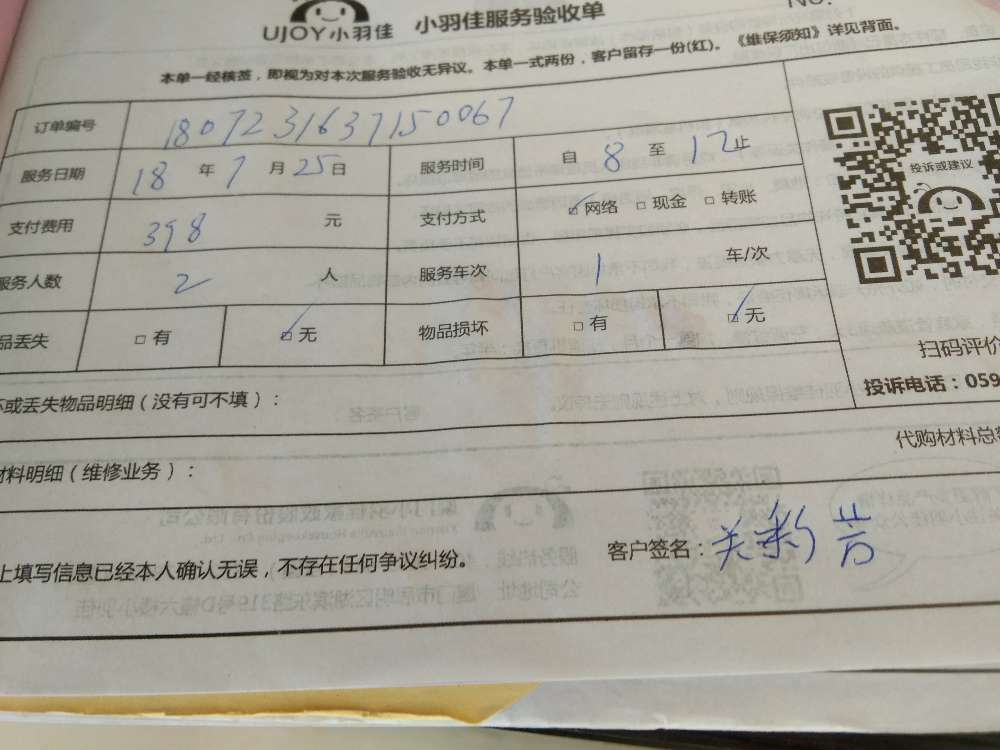 UJOY小羽佳 小羽佳服务验收单 No.
本单一经核签，即视为对本次服务验收无异议。本单一式两份，客户留存一份(红)。《维保须知》详见背面。
订单编号 1807231637150067
服务日期 18 年 7 月 25 日 服务时间 自 8 至 17 止
支付费用 398 元 支付方式 ☑网络 □现金 □转账
服务人数 2 人 服务车次 1 车/次
品丢失 □有 ☑无 物品损坏 □有 ☑无
投诉或建议
扫码评价
投诉电话：059
坏或丢失物品明细（没有可不填）：
代购材料总额
材料明细（维修业务）：
上填写信息已经本人确认无误，不存在任何争议纠纷。
客户签名：关彩芳